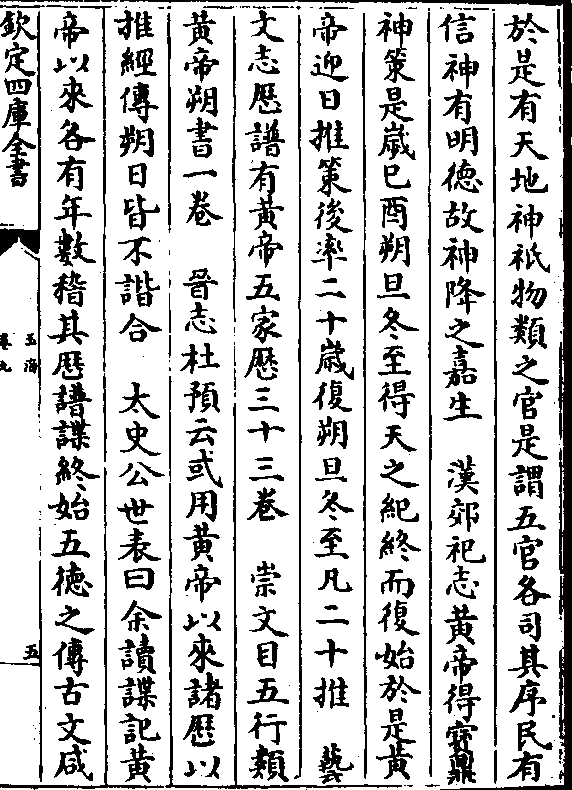 於是有天地神祇物類之官是謂五官各司其序民有
信神有明德故神降之嘉生　漢郊祀志黃帝得寳鼎
神策是嵗己酉朔旦冬至得天之紀終而復始於是黃
帝迎日推策後率二十嵗復朔旦冬至凡二十推　藝
文志厯譜有黃帝五家厯三十三卷　崇文目五行類
黃帝朔書一卷　晉志杜預云或用黃帝以來諸厯以
推經傳朔日皆不諧合　太史公世表曰余讀諜記黃
帝以來各有年數稽其厯譜諜終始五德之傳古文咸
欽定四庫全書
玉海
卷九
五